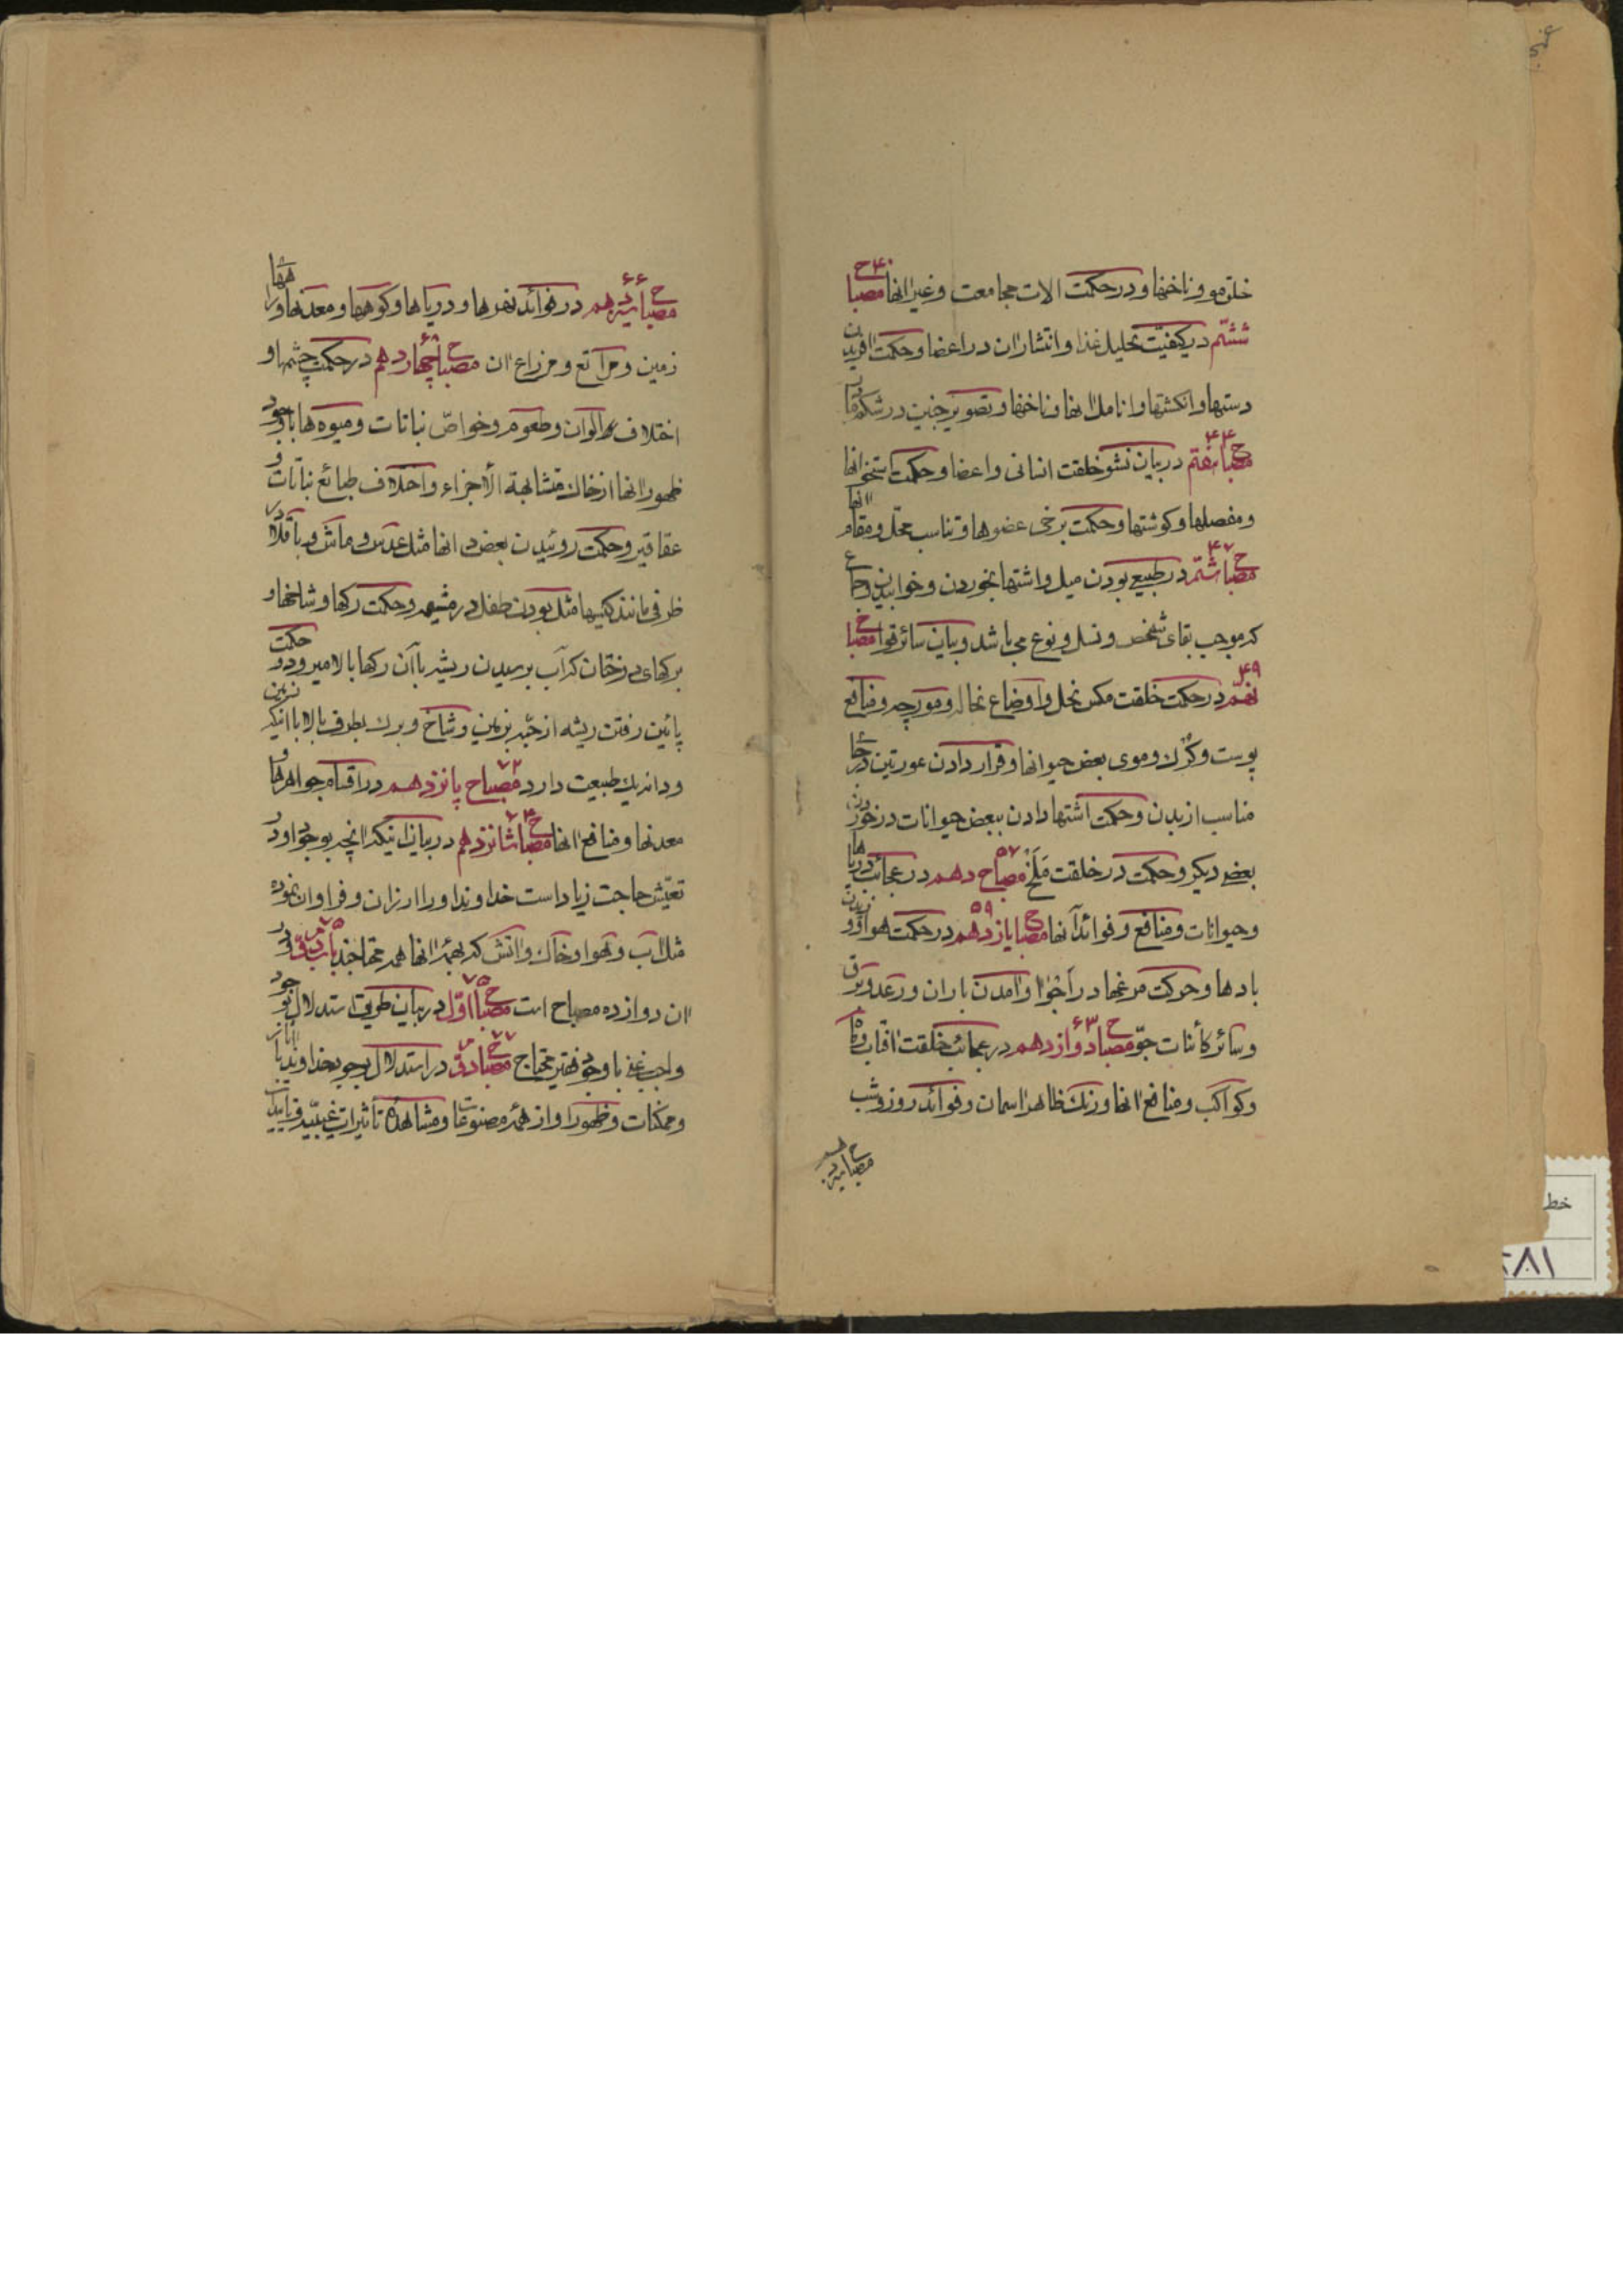 خلق مو و ناخنها و در حکمت الات مجامعت و غیر انها مصباح ۴۰
ششم در کیفیّت تحلیل غذا و انتشار ان در اعضا و حکمت افریدن
دستها و انکشتها و انامل انها و ناخنها و تصویر جنین در شکم مادر
مصباح هفتم ۴۴ در بیان نشو خلقت انسانی و اعضا و حکمت استخوانها
و مفصلها و کوشتها و حکمت برخی عضوها و تناسب محلّ و مقام انها
مصباح هشتم ۴۷ در طبیعی بودن میل و اشتها بخوردن و خوابیدن و جماع
که موجب بقای شخص و نسل و نوع می باشد و بیان سائر قوا مصباح
نهم ۴۹ در حکمت خلقت مکس نحل و اوضاع نحاله و مورچه و منافع
پوست و کرک و موی بعض حیوانها و قرار دادن عورتین در جای
مناسب از بدن و حکمت اشتها دادن ببعض حیوانات در خوردن
بعض دیکر و حکمت در خلقت مَلَخْ مصباح دهم ۵۷ در عجائب دریاها
و حیوانات و منافع و فوائد آنها مصباح یازدهم ۵۹ در حکمت هوا و وزیدن
بادها و حرکت مرغها در آخْوا و امدن باران و رعد و برق
و سائر کائنات جوّ مصباح دوازدهم ۶۳ در عجائب خلقت افتاب و ماه
و کواکب و منافع انها و رنک ظاهر اسمان و فوائد روز و شب
مصباح سیزدهم
مصباح سیزدهم ۶۶ در فوائد نهرها و دریاها و کوهها و معدنها و راهها
زمین و مراتع و مزارع ان مصباح چهاردهم ۶۸ در حکمت چشمها و
اختلاف الوان و طعوم و خواصّ نباتات و میوه ها با وجود
ظهور انها از خاک متشابهة الأجزاء و اختلاف طبائع نباتات و
عقاقیر و حکمت روئیدن بعض انها مثل عدس و ماش و باقلا در
ظرفی مانند کیسها مثل بودن طفل در مشیمه و حکمت رکها و شاخها و
برکهای درختان که آب برسیدن ریشه باآن رکها بالا میرود و حکمت
پائین رفتن ریشه از حبّه بزمین و شاخ و برک بطرف بالا با اینکه زمین
و دانه یک طبیعت دارد مصباح پانزدهم ۷۲ در اقسام جواهرها و
معدنها و منافع انها مصباح شانزدهم ۷۴ در بیان اینکه انچه بوجود او در
تعیّش حاجت زیاد است خداوند او را ارزان و فراوان نموده
مثل آب و هوا و خاک و اتش که بهمهٔ انها همه محتاجند باب دویّم ۷۵ و در
ان دوازده مصباح است مصباح اوّل ۷۵ در بیان طریق استدلال بوجود
واجب غنی باوجود فقیر محتاج مصباح دویّم ۷۷ در استدلال بوجود خداوند باثار
و ممکنات و ظهور او از همهٔ مصنوعات و مشاهدهٔ تاثیرات غیبیّه
خط